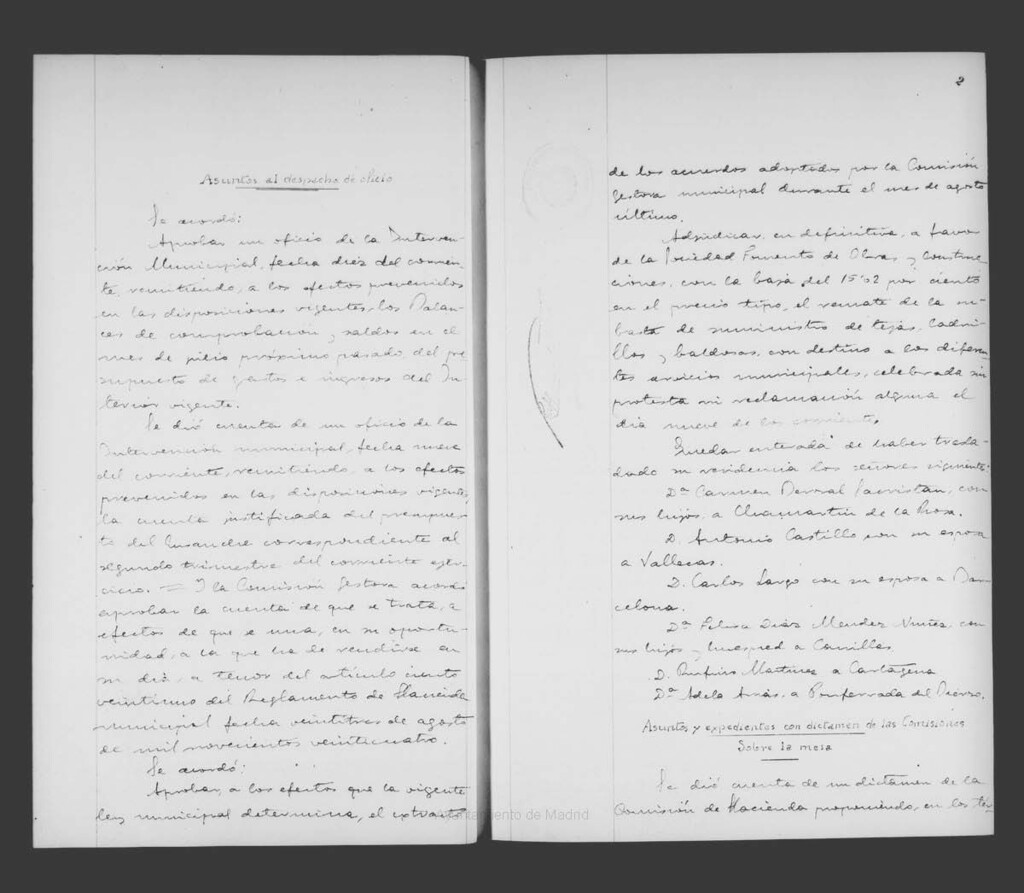 Asuntos al despacho de oficio
Se acordó:
Aprobar un oficio de la Interven-
ción Municipal, fecha diez del corrien-
te, remitiendo, a los efectos prevenidos
en las disposiciones vigentes, los Balan-
ces de comprobación y saldos en el
mes de julio próximo pasado del pre-
supuesto de gastos e ingresos del In-
terior vigente.
Se dió cuenta de un oficio de la
Intervención municipal, fecha nueve
del corriente, remitiendo, a los efectos
prevenidos en las disposiciones vigentes,
la cuenta justificada del presupues-
to del Ensanche correspondiente al
segundo trimestre del corriente ejer-
cicio. = Y la Comisión Gestora acordó
aprobar la cuenta de que se trata, a
efectos de que se una, en su oportu-
nidad, a la que ha de rendirse en
su día, a tenor del artículo ciento
veintiuno del Reglamento de Hacienda
municipal fecha veintitres de agosto
de mil novecientos veinticuatro.
Se acordó:
Aprobar, a los efectos que la vigente
ley municipal determina, el extracto
2
de los acuerdos adoptados por la Comisión
Gestora municipal durante el mes de agosto
último.
Adjudicar, en definitiva, a favor
de la Sociedad Fomento de Obras y Construc-
ciones, con la baja del 15'02 por ciento
en el precio tipo, el remate de la su-
basta de suministro de tejas, ladri-
llos y baldosas, con destino a los diferen-
tes servicios municipales, celebrada sin
protesta ni reclamación alguna el
día nueve de los corrientes.
Quedar enterada de haber trasla-
dado su residencia los señores siguientes:
Dª Carmen Sacristan, con
sus hijos, a Chamartín de la Rosa.
D. Antonio Castillo con su esposa
a Vallecas.
D. Carlos Largo con su esposa a Bar-
celona.
Dª Felisa Diaz Mendez Nuñez, con
sus hijos y huesped a Canillas
D. Rufino Martinez a Cartagena
Dª Adela a Ponferrada del Bierzo.
Asuntos y expedientes con dictamen de las Comisiones
Sobre la mesa
Se dió cuenta de un dictamen de la
Comisión de Hacienda proponiendo, en los tér-
Ayuntamiento de Madrid